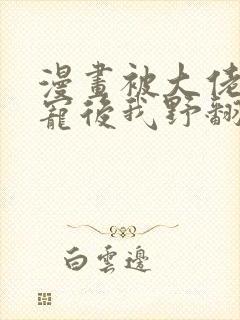 漫畫被大佬
寵後我野翻
白雲邊